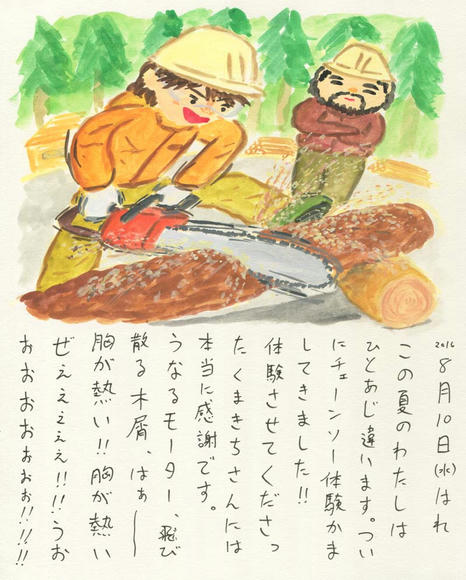 2016 8月10日(水)はれ
この夏のわたしは
ひとあじ違います。つい
にチェーンソー体験かま
してきました!!
体験させてくださっ
たくまきちさんには
本当に感謝です。
うなるモーター、飛び
散る木屑、はぁ──
胸が熱い!!胸が熱い
ぜぇぇぇぇぇ!!!うお
おおおおぉぉぉ!!!!